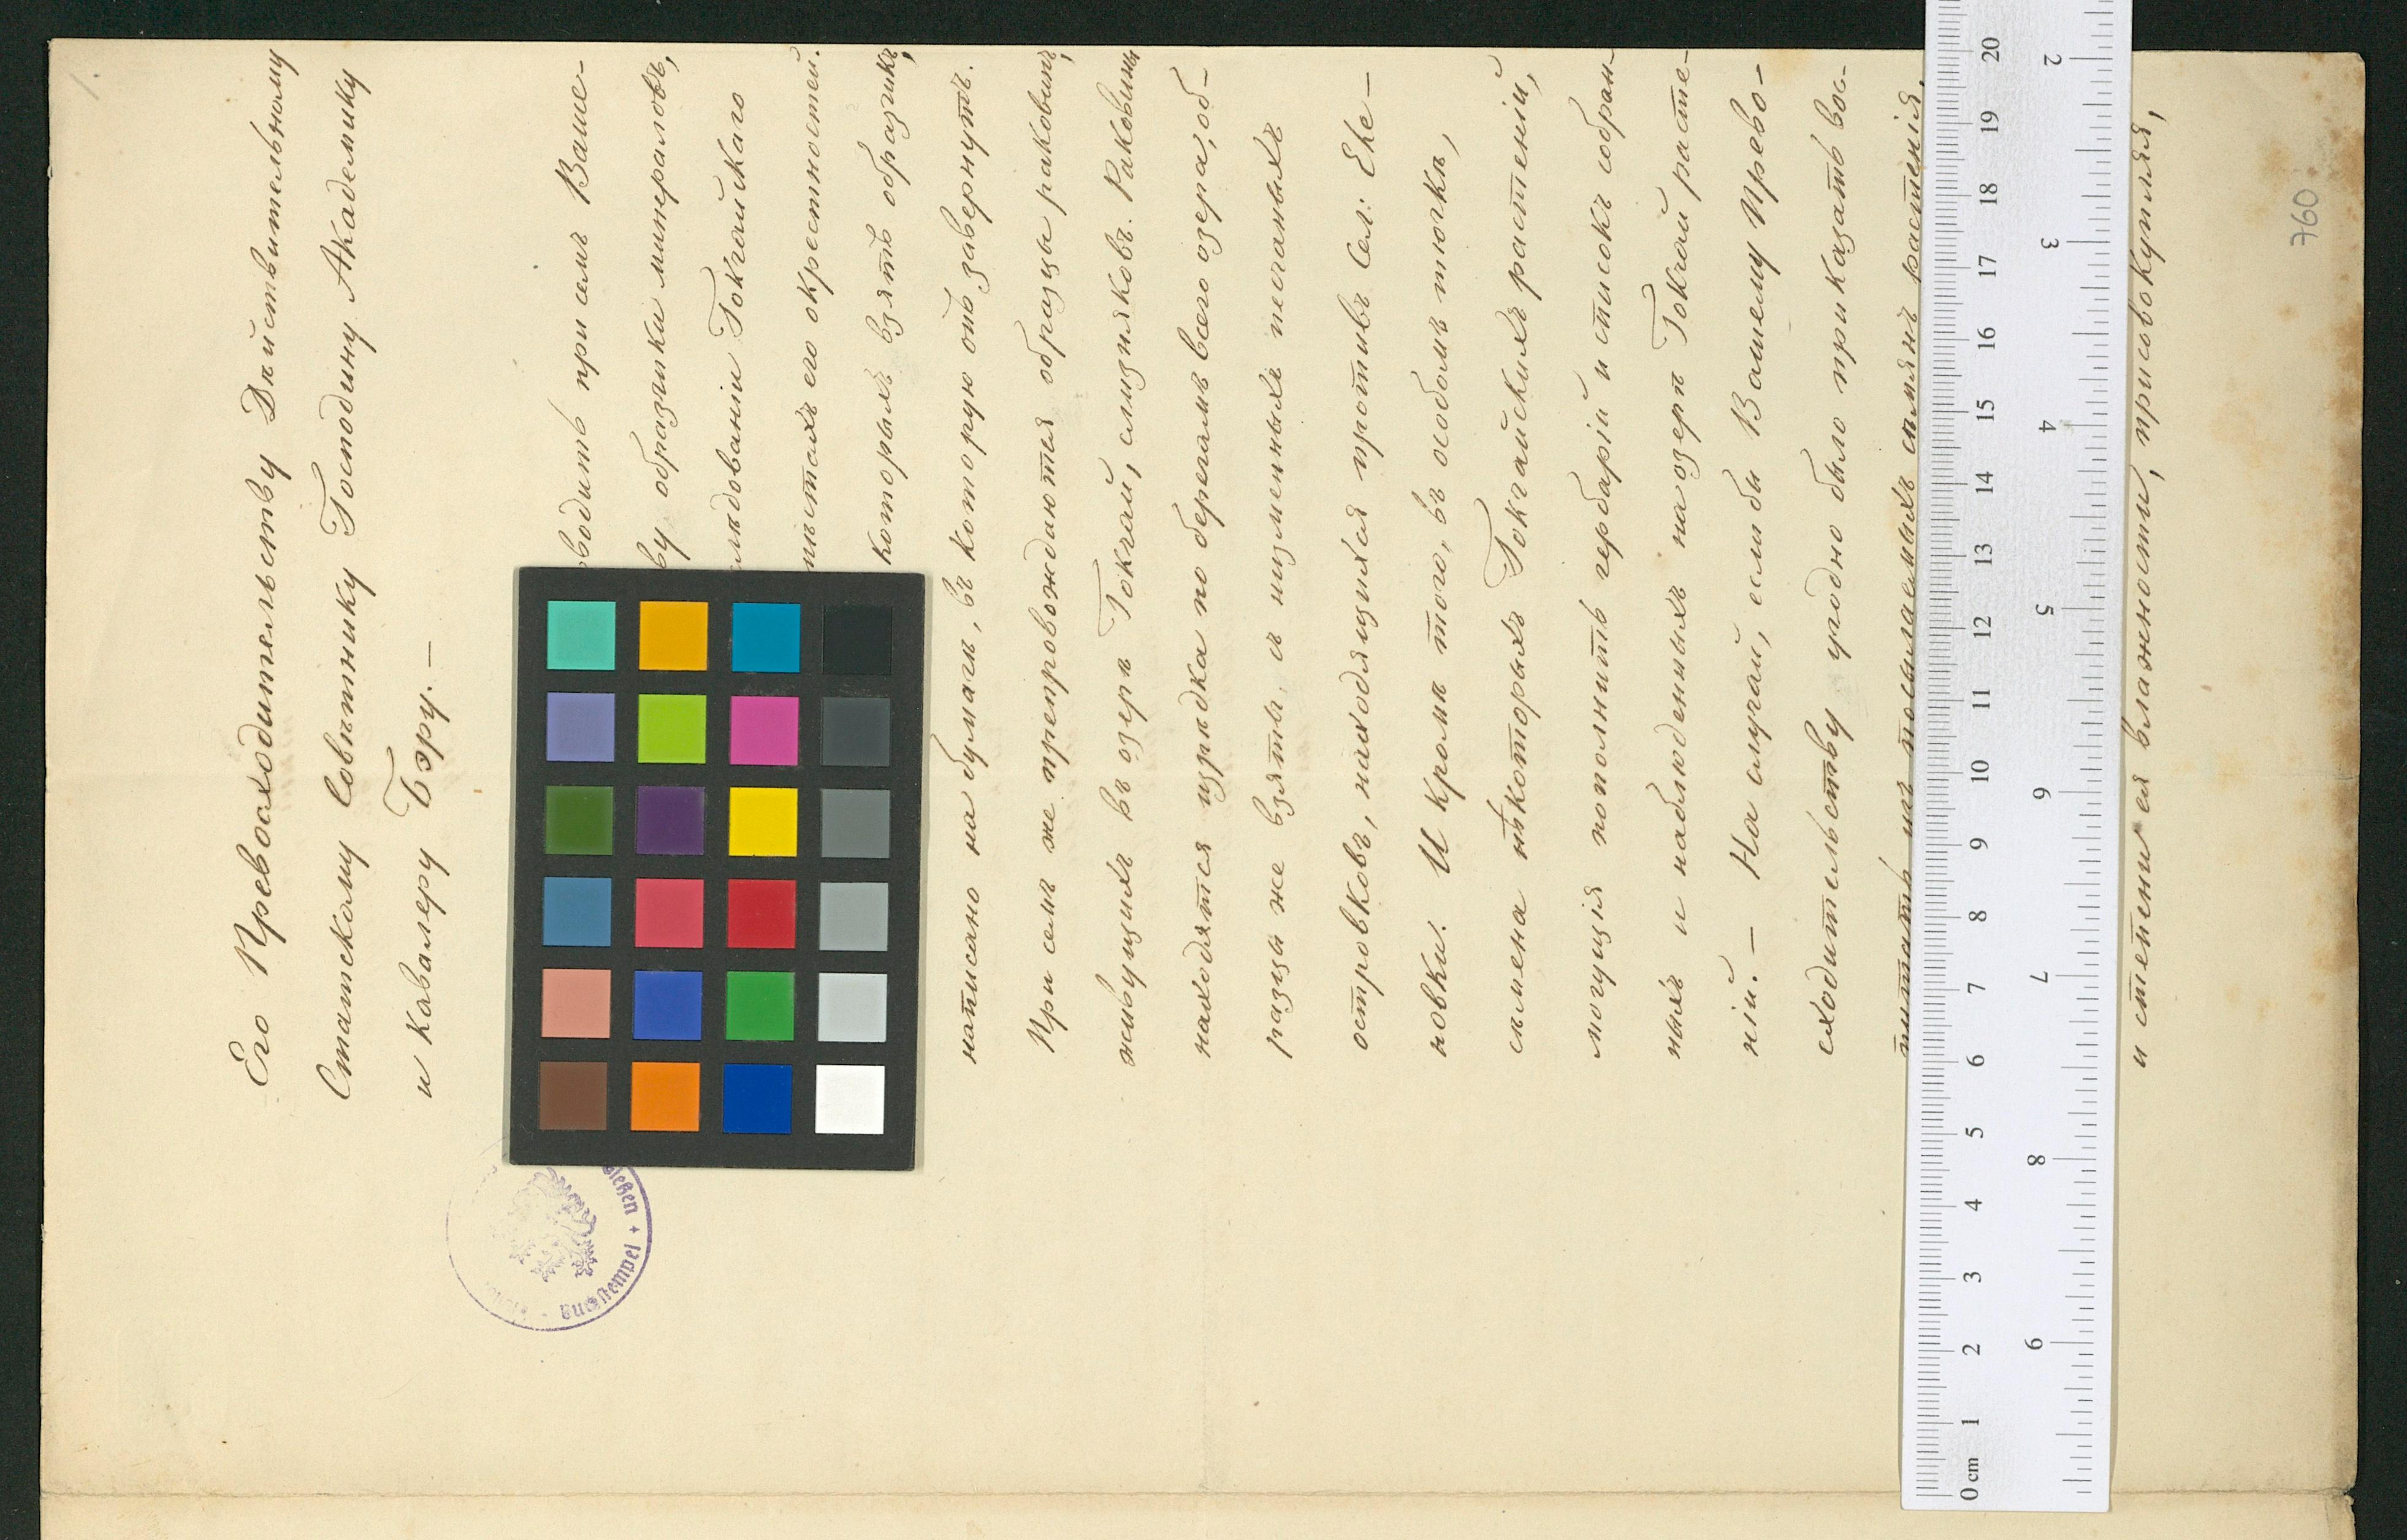 Его Превосходительству Дѣйствительному
Статскому Совѣтнику Господину Академику
и Кавалеру Бэру. —
водить при семъ Ваше-
ву образчики минераловъ,
слѣдованіи Гокчайскаго
мѣстахъ его окрестностей.
которыхъ взятъ образчикъ,
написано на бумагѣ, въ которую онъ завернутъ.
При семъ же препровождаются образцы раковинъ,
живущихъ въ озерѣ Гокчай, слизняковъ. Раковины
находятся изрѣдка по берегамъ всего озера; об-
разцы же взяты съ низменныхъ песчаныхъ
островковъ, находящихся противъ Сел: Еле-
новки. И кромѣ того, въ особомъ тючкѣ,
сѣмена нѣкоторыхъ Гокчайскихъ растеній,
могущія пополнить гербарій и списокъ собран-
ныхъ и наблюденныхъ на озерѣ Гокчай расте-
ній. — На случай, если бы Вашему Прево-
сходительству угодно было приказать вос-
питать изъ посылаемыхъ сѣмянъ растенія,
и степени ея влажности, присовокупляя,
760
Gießen + Stempel
0cm 1 2 3 4 5 6 7 8 9 10 11 12 13 14 15 16 17 18 19 20
2 3 4 5 6 7 8 9